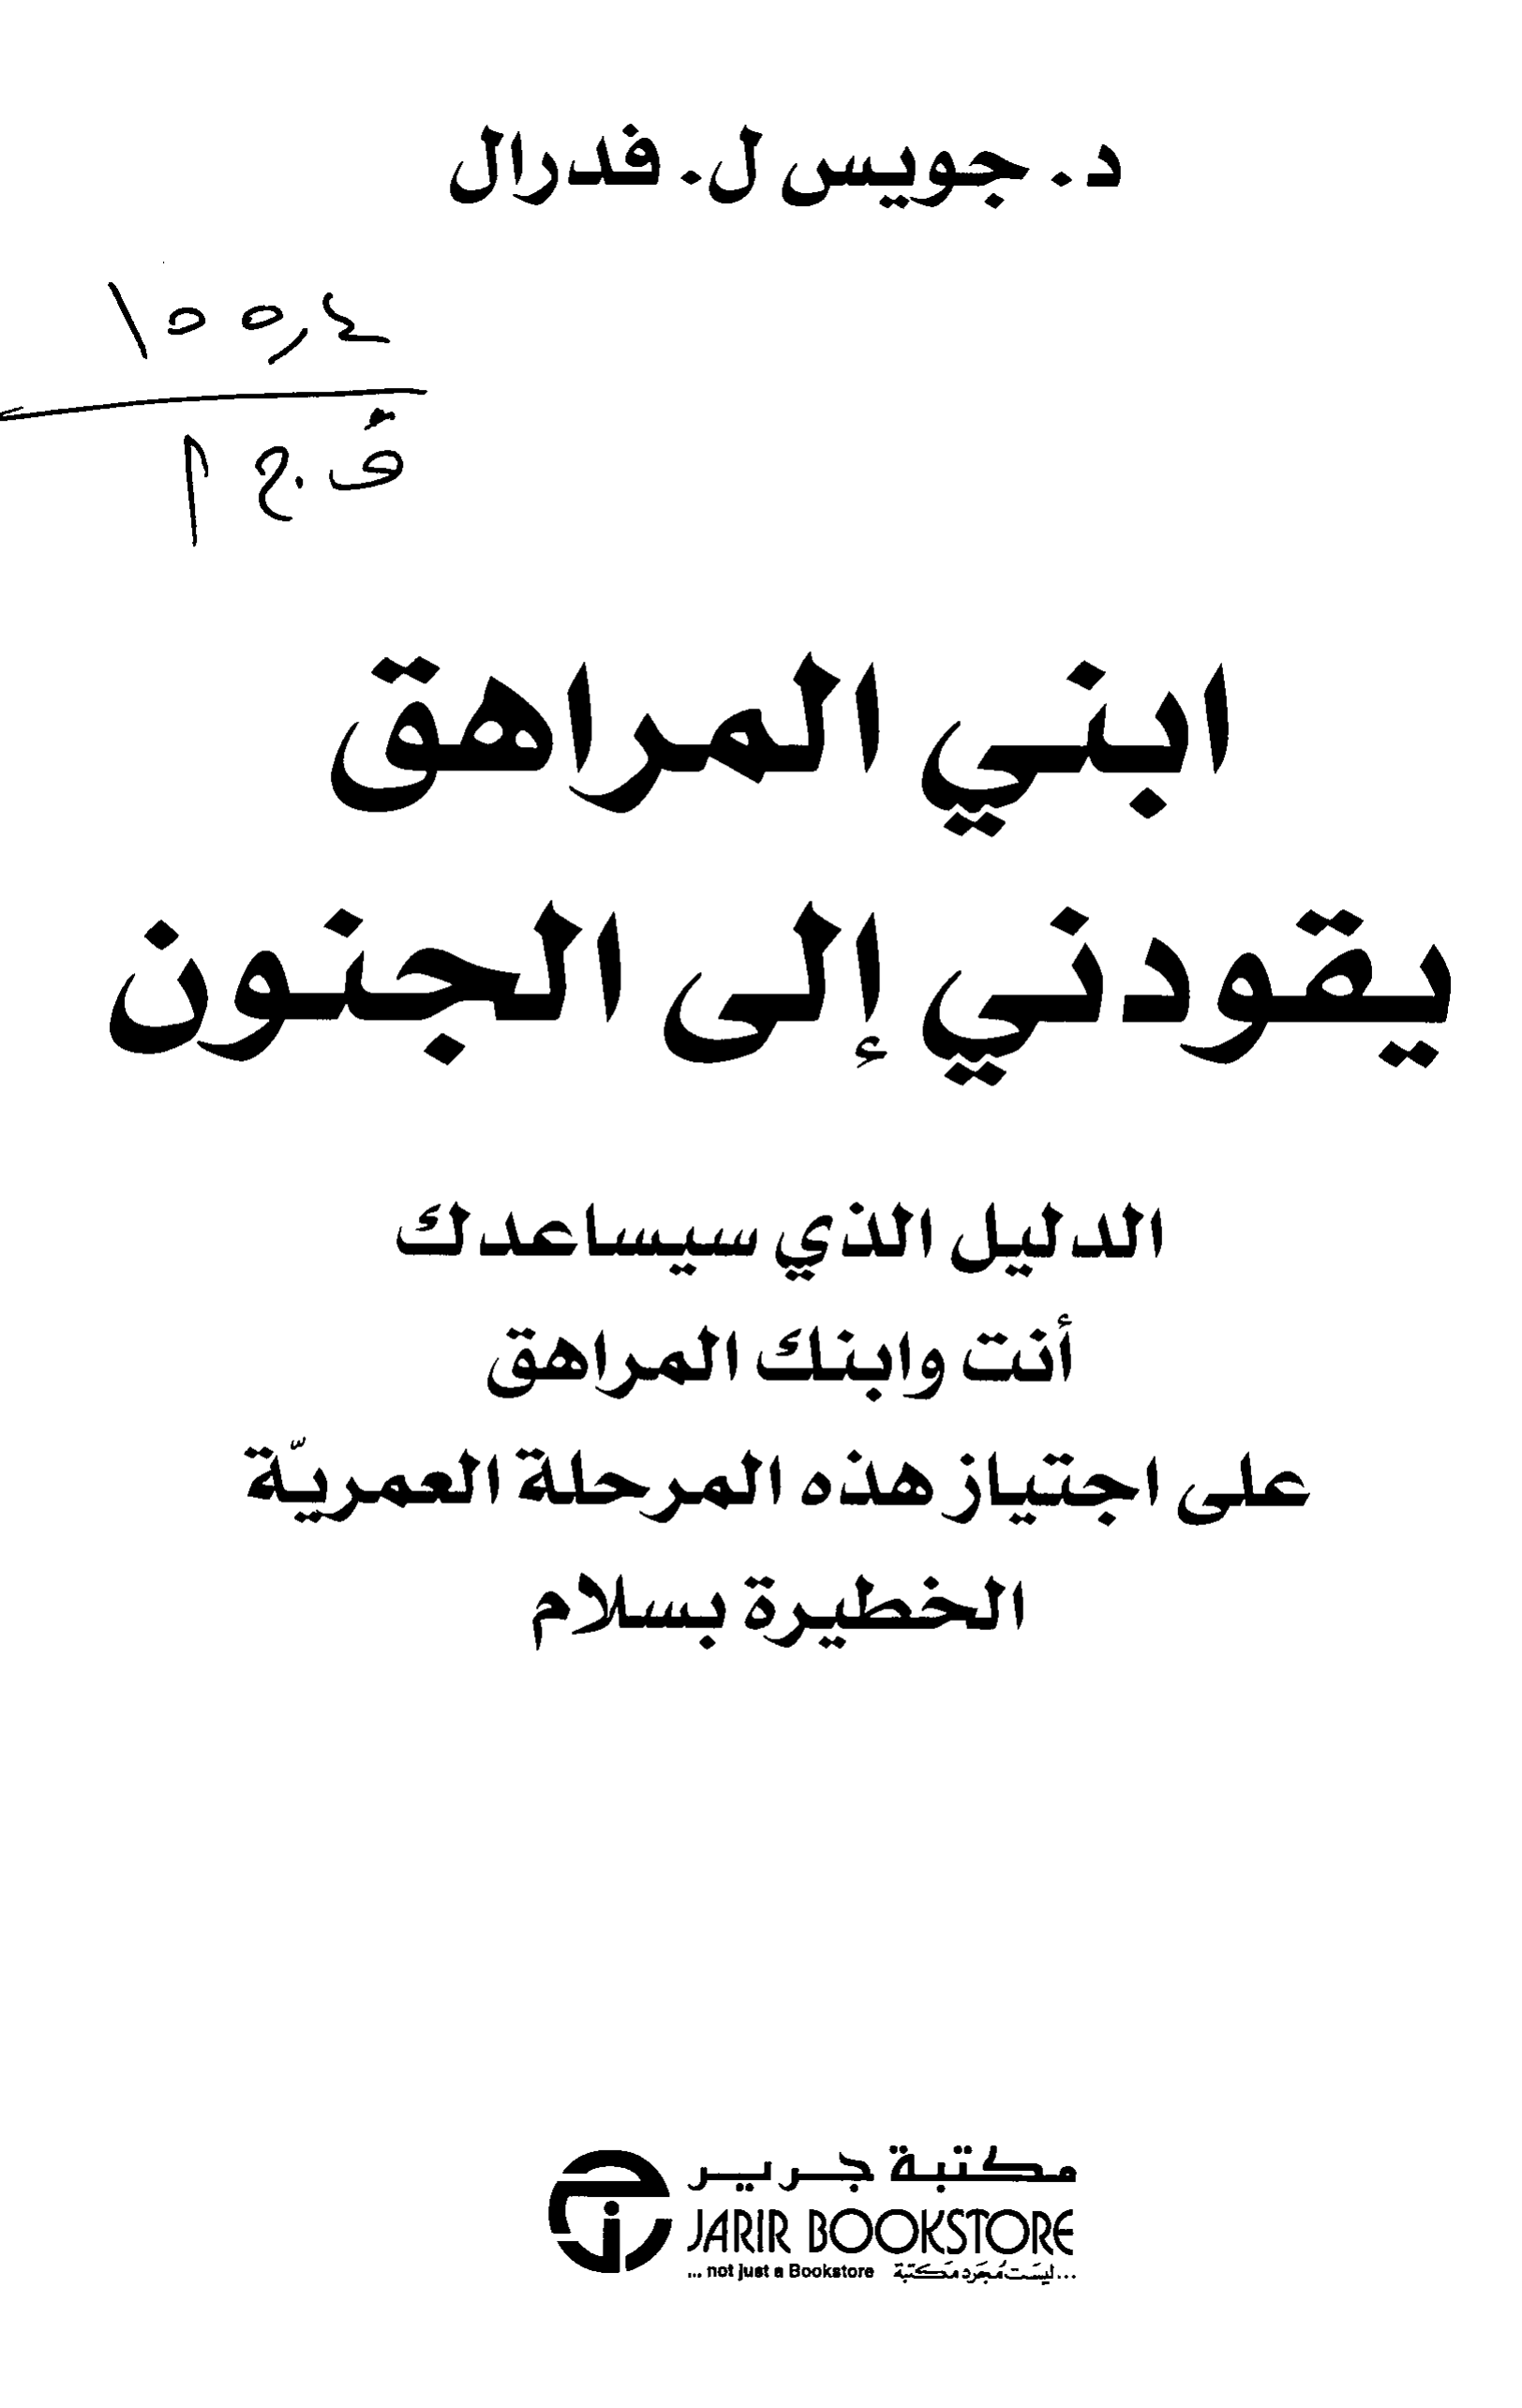 د. جويس ل. فدرال
١٥٥,٤
ف. ج ٢
ابني المراهق
يقودني إلى الجنون
الدليل الذي سيساعدك
أنت وابنك المراهق
على اجتياز هذه المرحلة العمريّة
الخطيرة بسلام
مكتبة جرير
JARIR BOOKSTORE
... not just a Bookstore ...ليست مجرد مكتبة